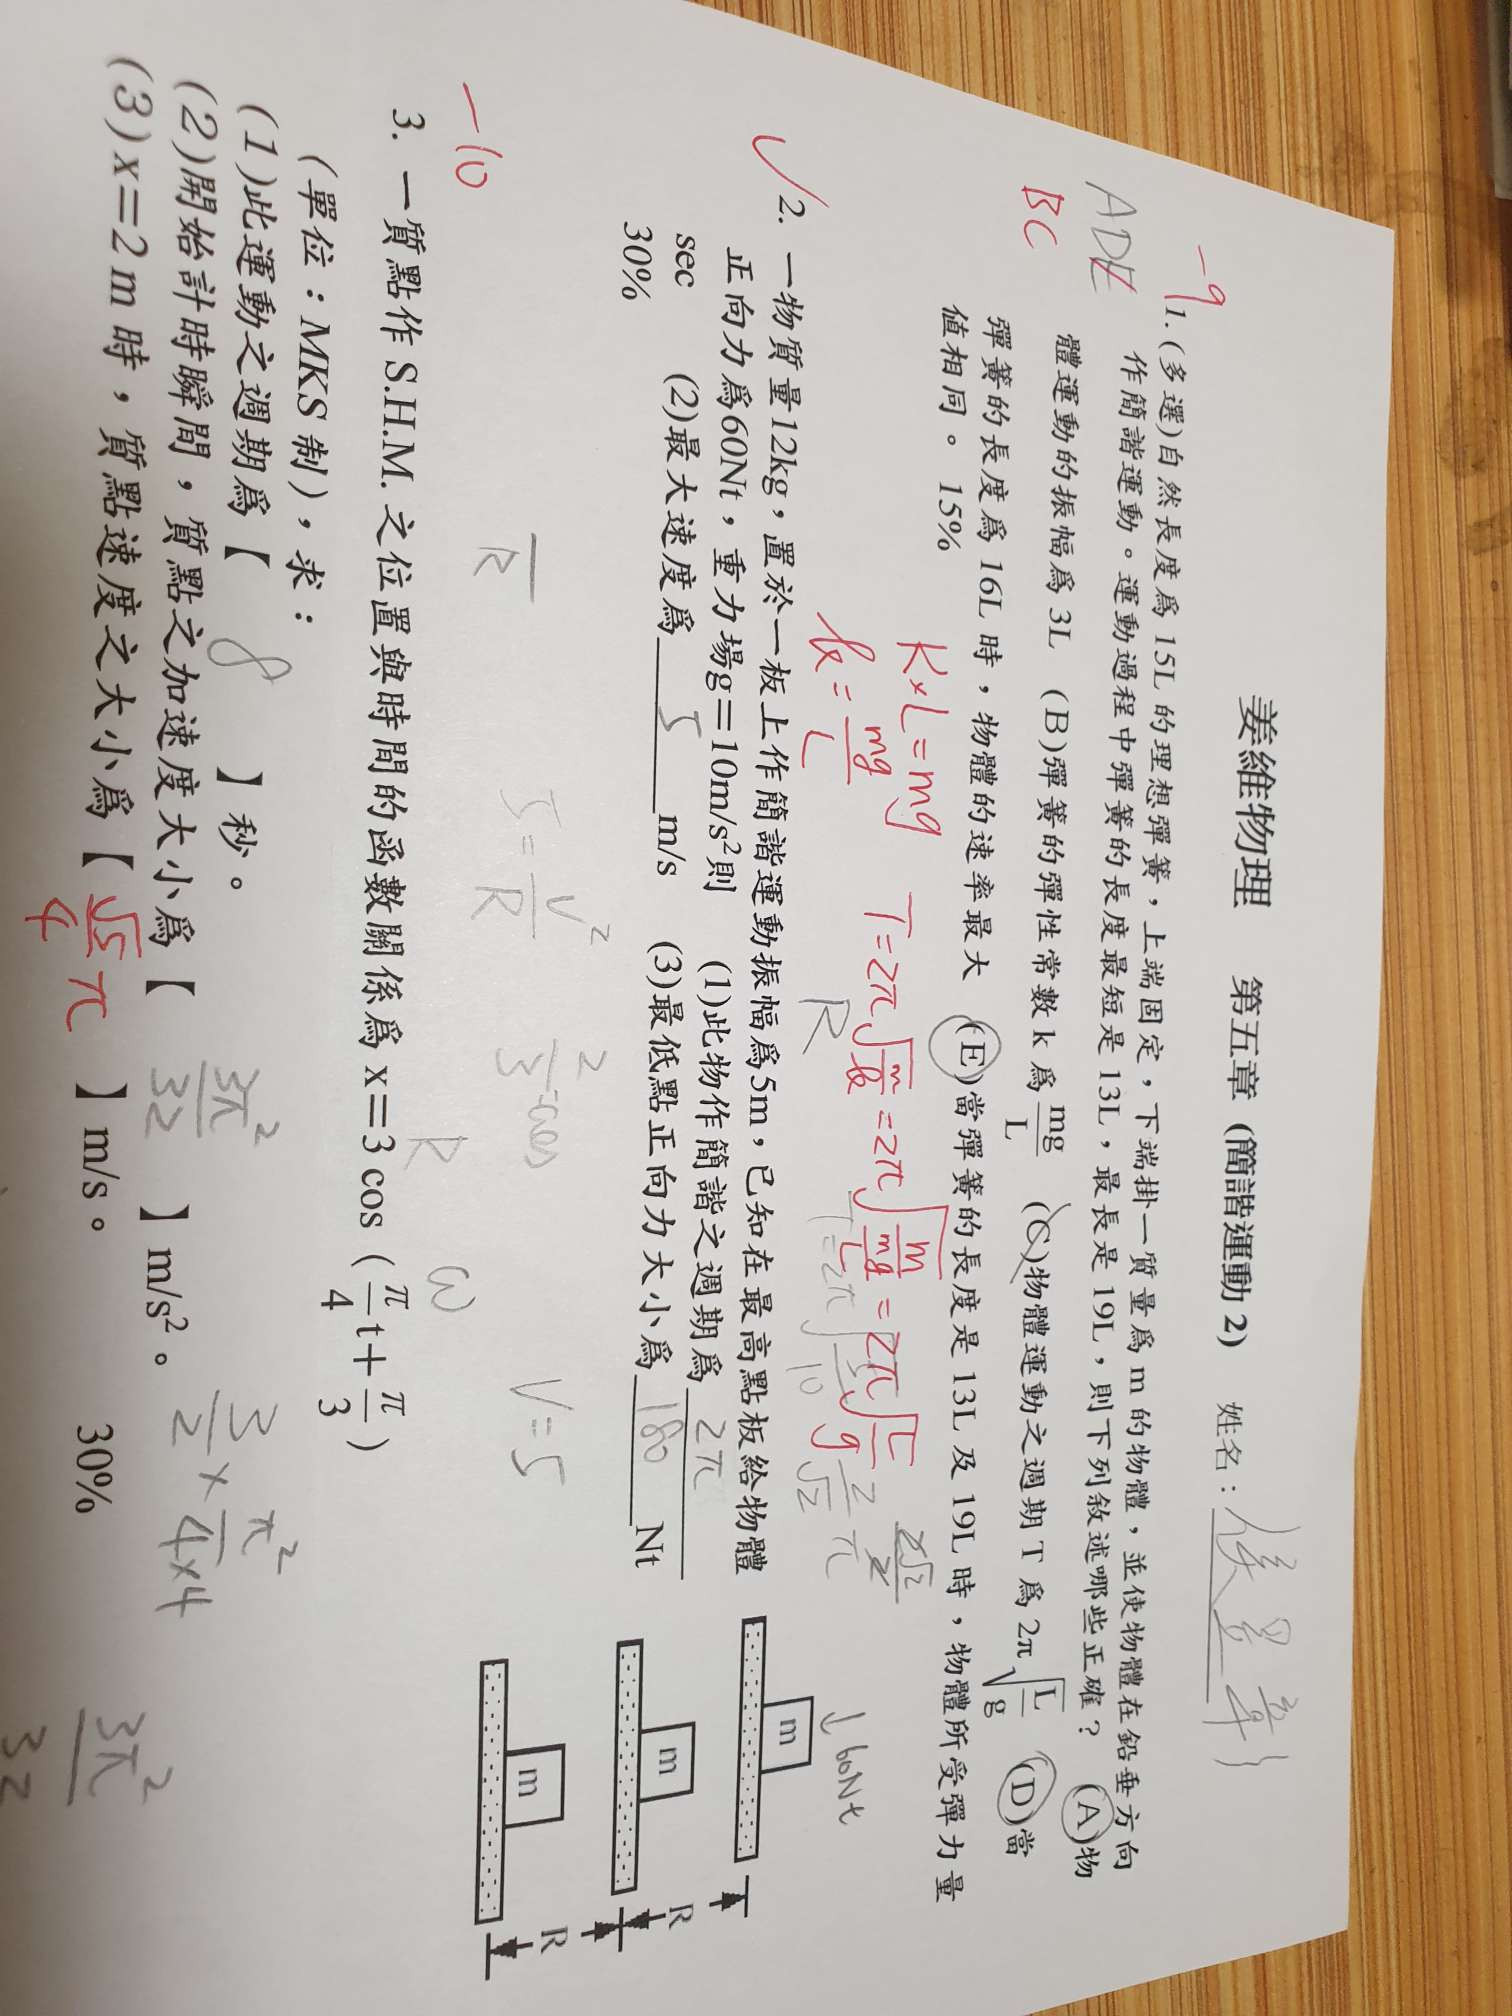 姜維物理 第五章 (簡諧運動 2) 姓名:
-9
ADE
BC
1. (多選)自然長度為 15L 的理想彈簧,上端固定,下端掛一質量為 m 的物體,並使物體在鉛垂方向
作簡諧運動。運動過程中彈簧的長度最短是 13L,最長是 19L,則下列敘述哪些正確? (A)物
體運動的振幅為 3L (B)彈簧的彈性常數 k 為 mg/L (C)物體運動之週期 T 為 2π√(L/g) (D)當
彈簧的長度為 16L 時,物體的速率最大 (E)當彈簧的長度是 13L 及 19L 時,物體所受彈力量
值相同。 15%
K×L=mg
k=mg/L
T=2π√(m/k)=2π√(m/(mg/L))=2π√(L/g)
R
2. 一物質量12kg,置於一板上作簡諧運動振幅為5m,已知在最高點板給物體
正向力為60Nt,重力場g=10m/s²則 (1)此物作簡諧之週期為 2π
sec (2)最大速度為 5 m/s (3)最低點正向力大小為 180 Nt
30%
↓60Nt
m
m
m
R
R
5=v²/R
V=5
-10
R
ω
3. 一質點作 S.H.M. 之位置與時間的函數關係為 x=3 cos (π/4 t+π/3)
(單位:MKS 制),求:
(1)此運動之週期為【 8 】秒。
(2)開始計時瞬間,質點之加速度大小為【 3π²/32 】m/s²。
3/2×π²/4×4
3π²/32
(3)x=2 m 時,質點速度之大小為【 √5/4 π 】m/s。 30%